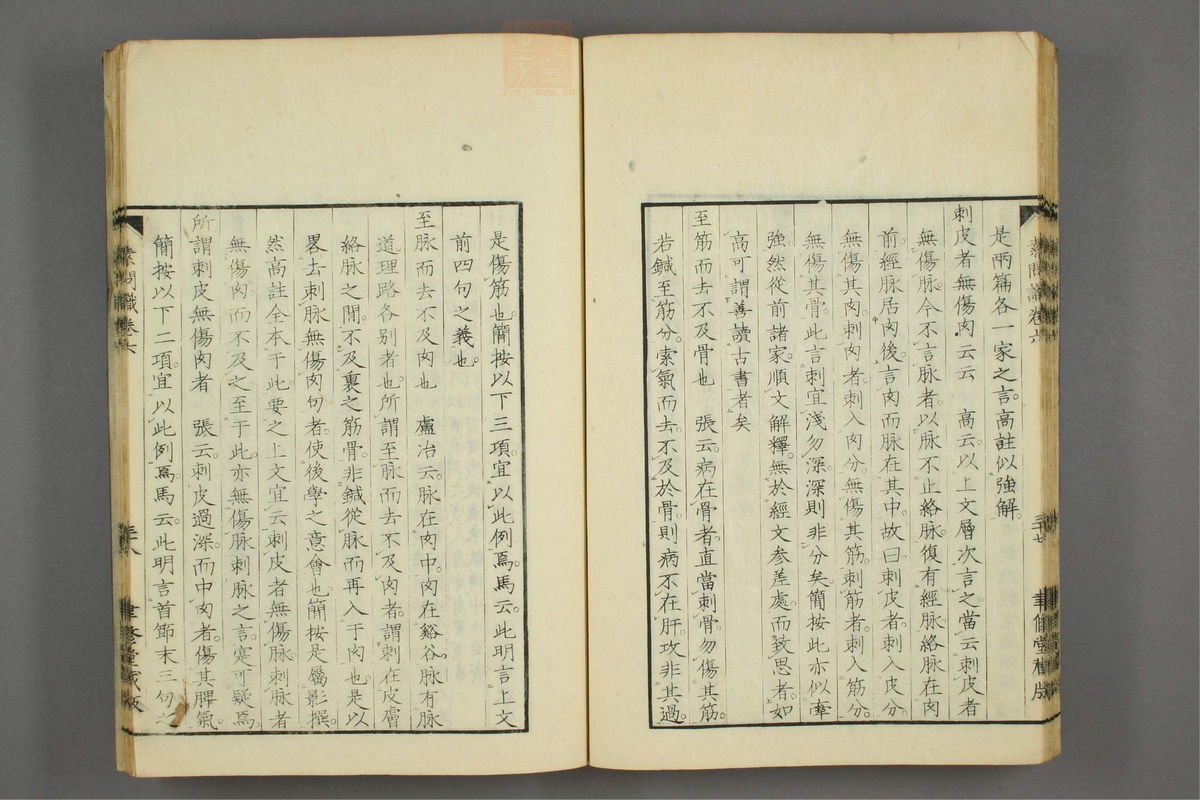 是兩篇各一家之言。高註似強解。
刺皮者無傷肉云云　高云。以上文層次言之。當云刺皮者
無傷脉。今不言脉者。以脉不止絡脉。復有經脉。絡脉在肉
前。經脉居肉後。言肉而脉在其中。故曰刺皮者。刺入皮分。
無傷其肉。刺肉者。刺入肉分。無傷其筋。刺筋者。刺入筋分。
無傷其骨。此言刺宜淺勿深。深則非分矣。簡按此亦似牽
強。然從前諸家。順文解釋。無於經文参差處。而致思者。如
高可謂善讀古書者矣
至筋而去不及骨也　張云。病在骨者。直當刺骨。勿傷其筋。
若鍼至筋分。索氣而去。不及於骨。則病不在肝。攻非其過。
素問識卷六
三十七
聿修堂藏版
是傷筋也。簡按以下三項。宜以此例焉。馬云。此明言上文
前四句之義也。
至脉而去不及肉也　盧冶云。脉在肉中。肉在谿谷。脉有脉
道理路。各別者也。所謂至脉而去。不及肉者。謂刺在皮膚
絡脉之閒。不及裏之筋骨。非鍼從脉而再入于肉也。是以
畧去刺脉無傷肉句者。使後學之意會也。簡按是屬影撰。
然高註全本于此。要之上文宜云刺皮者無傷脉。刺脉者
無傷肉。而不及之。至于此。亦無傷脉刺脉之言。寔可疑焉。
所謂刺皮無傷肉者　張云。刺皮過深。而中肉者。傷其脾氣。
簡按以下二項。宜以此例焉。馬云。此明言首節末三句之
素問識卷六
三十八
聿修堂藏版